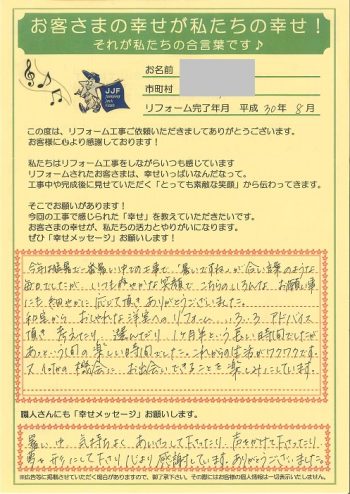 お客さまの幸せが私たちの幸せ!
それが私たちの合言葉です♪
JJF
お名前
市町村
リフォーム完了年月 平成30年8月
この度は、リフォーム工事ご依頼いただきましてありがとうございます。
お客様に心より感謝しております!
私たちはリフォーム工事をしながらいつも感じています
リフォームされたお客さまは、幸せいっぱいなんだなって。
工事中や完成後に見せていただく「とっても素敵な笑顔」から伝わってきます。
そこでお願いがあります!
今回の工事で感じられた「幸せ」を教えていただきたいです。
お客さまの幸せが、私たちの活力とやりがいになります。
ぜひ「幸せメッセージ」お願いします!
今年は最悪で一番暑い中での工事で「暑いですね」が合い言葉のような
毎日でしたが、いつも爽やかな笑顔で こちらのいろんな お願い事
にも 細やかに 応じて頂き ありがとうございました。
和室から おしゃれな洋室への リフォーム いろいろ アドバイス
頂き 考えたり 選んだり 1ヶ月半という長い時間でしたが
あっという間の 楽しい時間でした。これからの生活がワクワクです。
又 何かの機会に お会いできることを 楽しみにしています。
職人さんにも「幸せメッセージ」お願いします。
暑い中、気持ちよく あいさつして下さったり 声をかけて下さったり
して下さり 心より 感謝しています。ありがとうございました。
※広告等に掲載させていただく場合がありますので、御了承下さい。その際にはお客様の個人情報は一切表示いたしません。